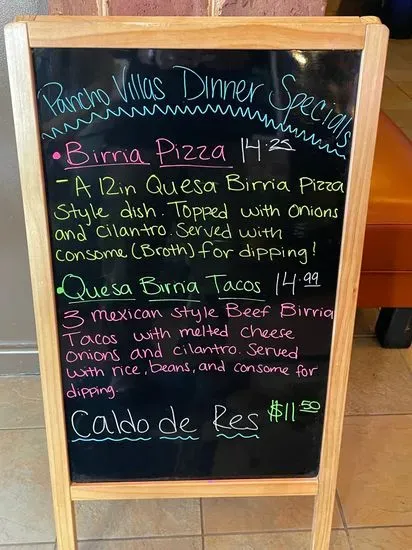 Pancho Villas Dinner Specials
• Birria Pizza 14.25
- A 12in Quesa Birria Pizza
Style dish. Topped with onions
and cilantro. Served with
consome (Broth) for dipping!
• Quesa Birria Tacos 14.99
3 mexican style Beef Birria
Tacos with melted cheese
onions and cilantro. Served
with rice, beans, and consome for
dipping.
Caldo de Res $11.50